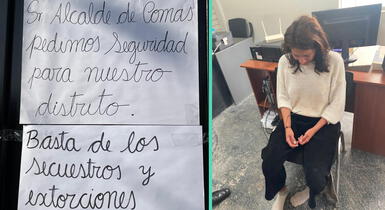 Sr Alcalde de Comas
pedimos seguridad
para nuestro
distrito.
Basta de los
secuestros y
extorciones